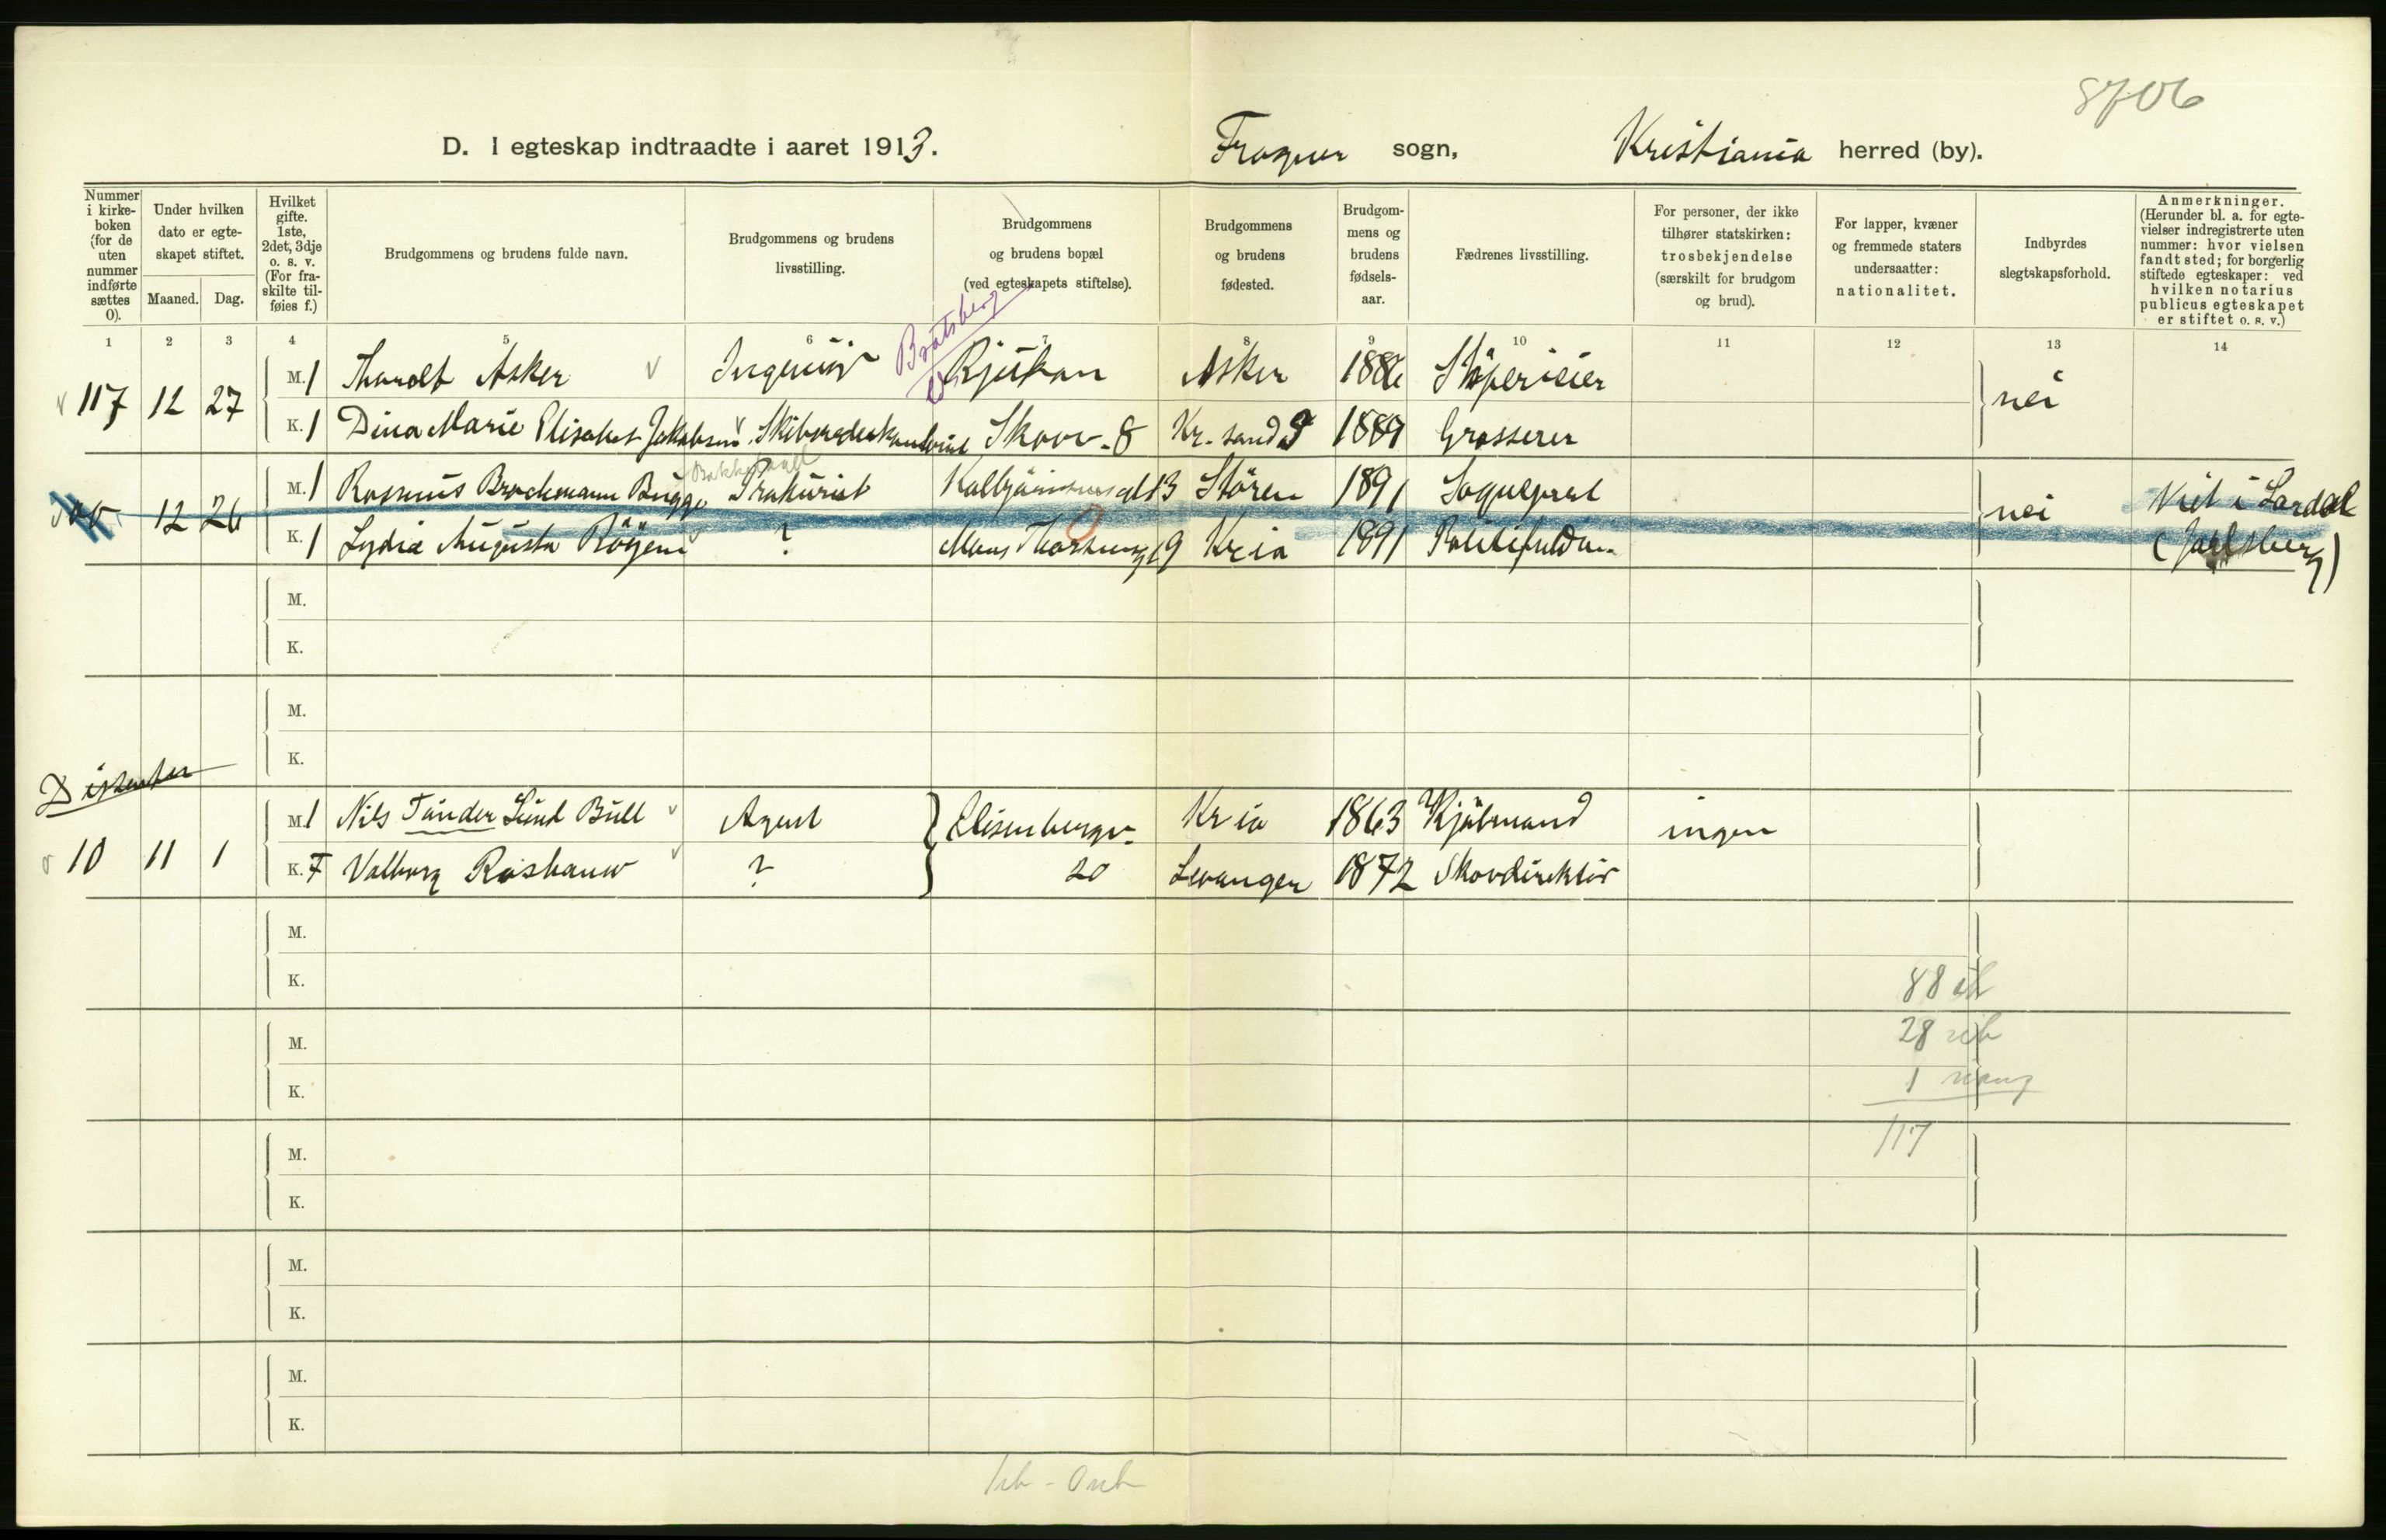 8706
D. I egteskap indtraadte i aaret 1913. Frogner sogn, Kristiania herred (by).
Nummer i kirkeboken (for de uten nummer indførte sættes 0).
Under hvilken dato er egteskapet stiftet.
Maaned. Dag.
Hvilket gifte. 1ste, 2det, 3dje o. s. v. (For fraskilte tilføies f.)
Brudgommens og brudens fulde navn.
Brudgommens og brudens livsstilling.
Brudgommens og brudens bopæl (ved egteskapets stiftelse).
Brudgommens og brudens fødested.
Brudgommens og brudens fødselsaar.
Fædrenes livsstilling.
For personer, der ikke tilhører statskirken: trosbekjendelse (særskilt for brudgom og brud).
For lapper, kvæner og fremmede staters undersaatter: nationalitet.
Indbyrdes slegtskapsforhold.
Anmerkninger. (Herunder bl. a. for egtevielser indregistrerte uten nummer: hvor vielsen fandt sted; for borgerlig stiftede egteskaper: ved hvilken notarius publicus egteskapet er stiftet o. s. v.)
1 2 3 4 5 6 7 8 9 10 11 12 13 14
Bratsberg
117 12 27 M. 1 Tharolf Asker Ingeniør Rjukan Asker 1886 nei
K. 1 Dina Marie Elisabet Jakobsen Skov-8 Kr.sand S 1889 Grosserer
12 26 M. 1 Rasmus Brochmann Bugge Prokurist 13 Støren 1891 Sogneprest nei Viet i Lardal
K. 1 Lydia Augusta ? 19 Kria 1891 (Jarlsberg)
M.
K.
M.
K.
Disenter
10 11 1 M. 1 Nils Tander Lund Bull Agent Elisenbergv. Kria 1863 Kjøbmand ingen
K. F Valborg Roshauw ? 20 Levanger 1872 Skovdirektør
M.
K.
88
28
M.
K.
1
117
M.
K.
M.
K.
M.
K.